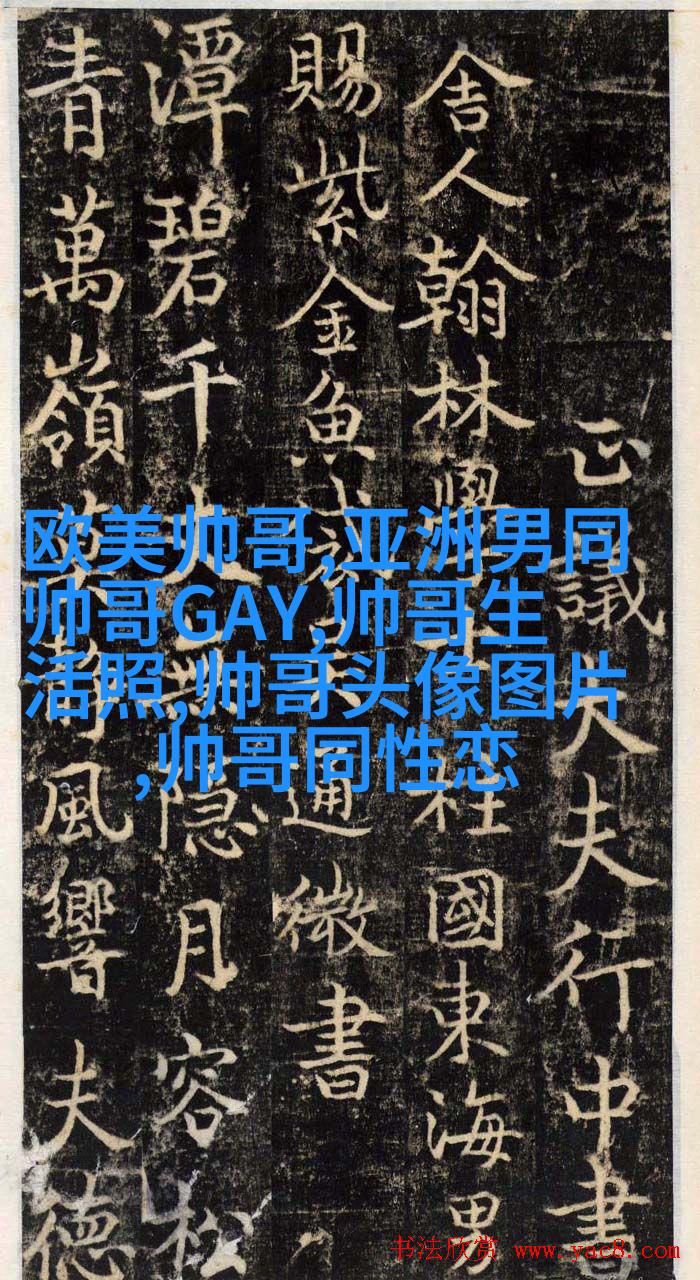 正議大夫行中書
舍人翰林學士柱國東海男
賜紫金魚袋通微書
潭碧千丈無隱月容松
青萬嶺風響夫德
欧美帅哥,亚洲男同
帅哥GAY,帅哥生
活照,帅哥头像图片
,帅哥同性恋
书法欣赏 www.yac8.com